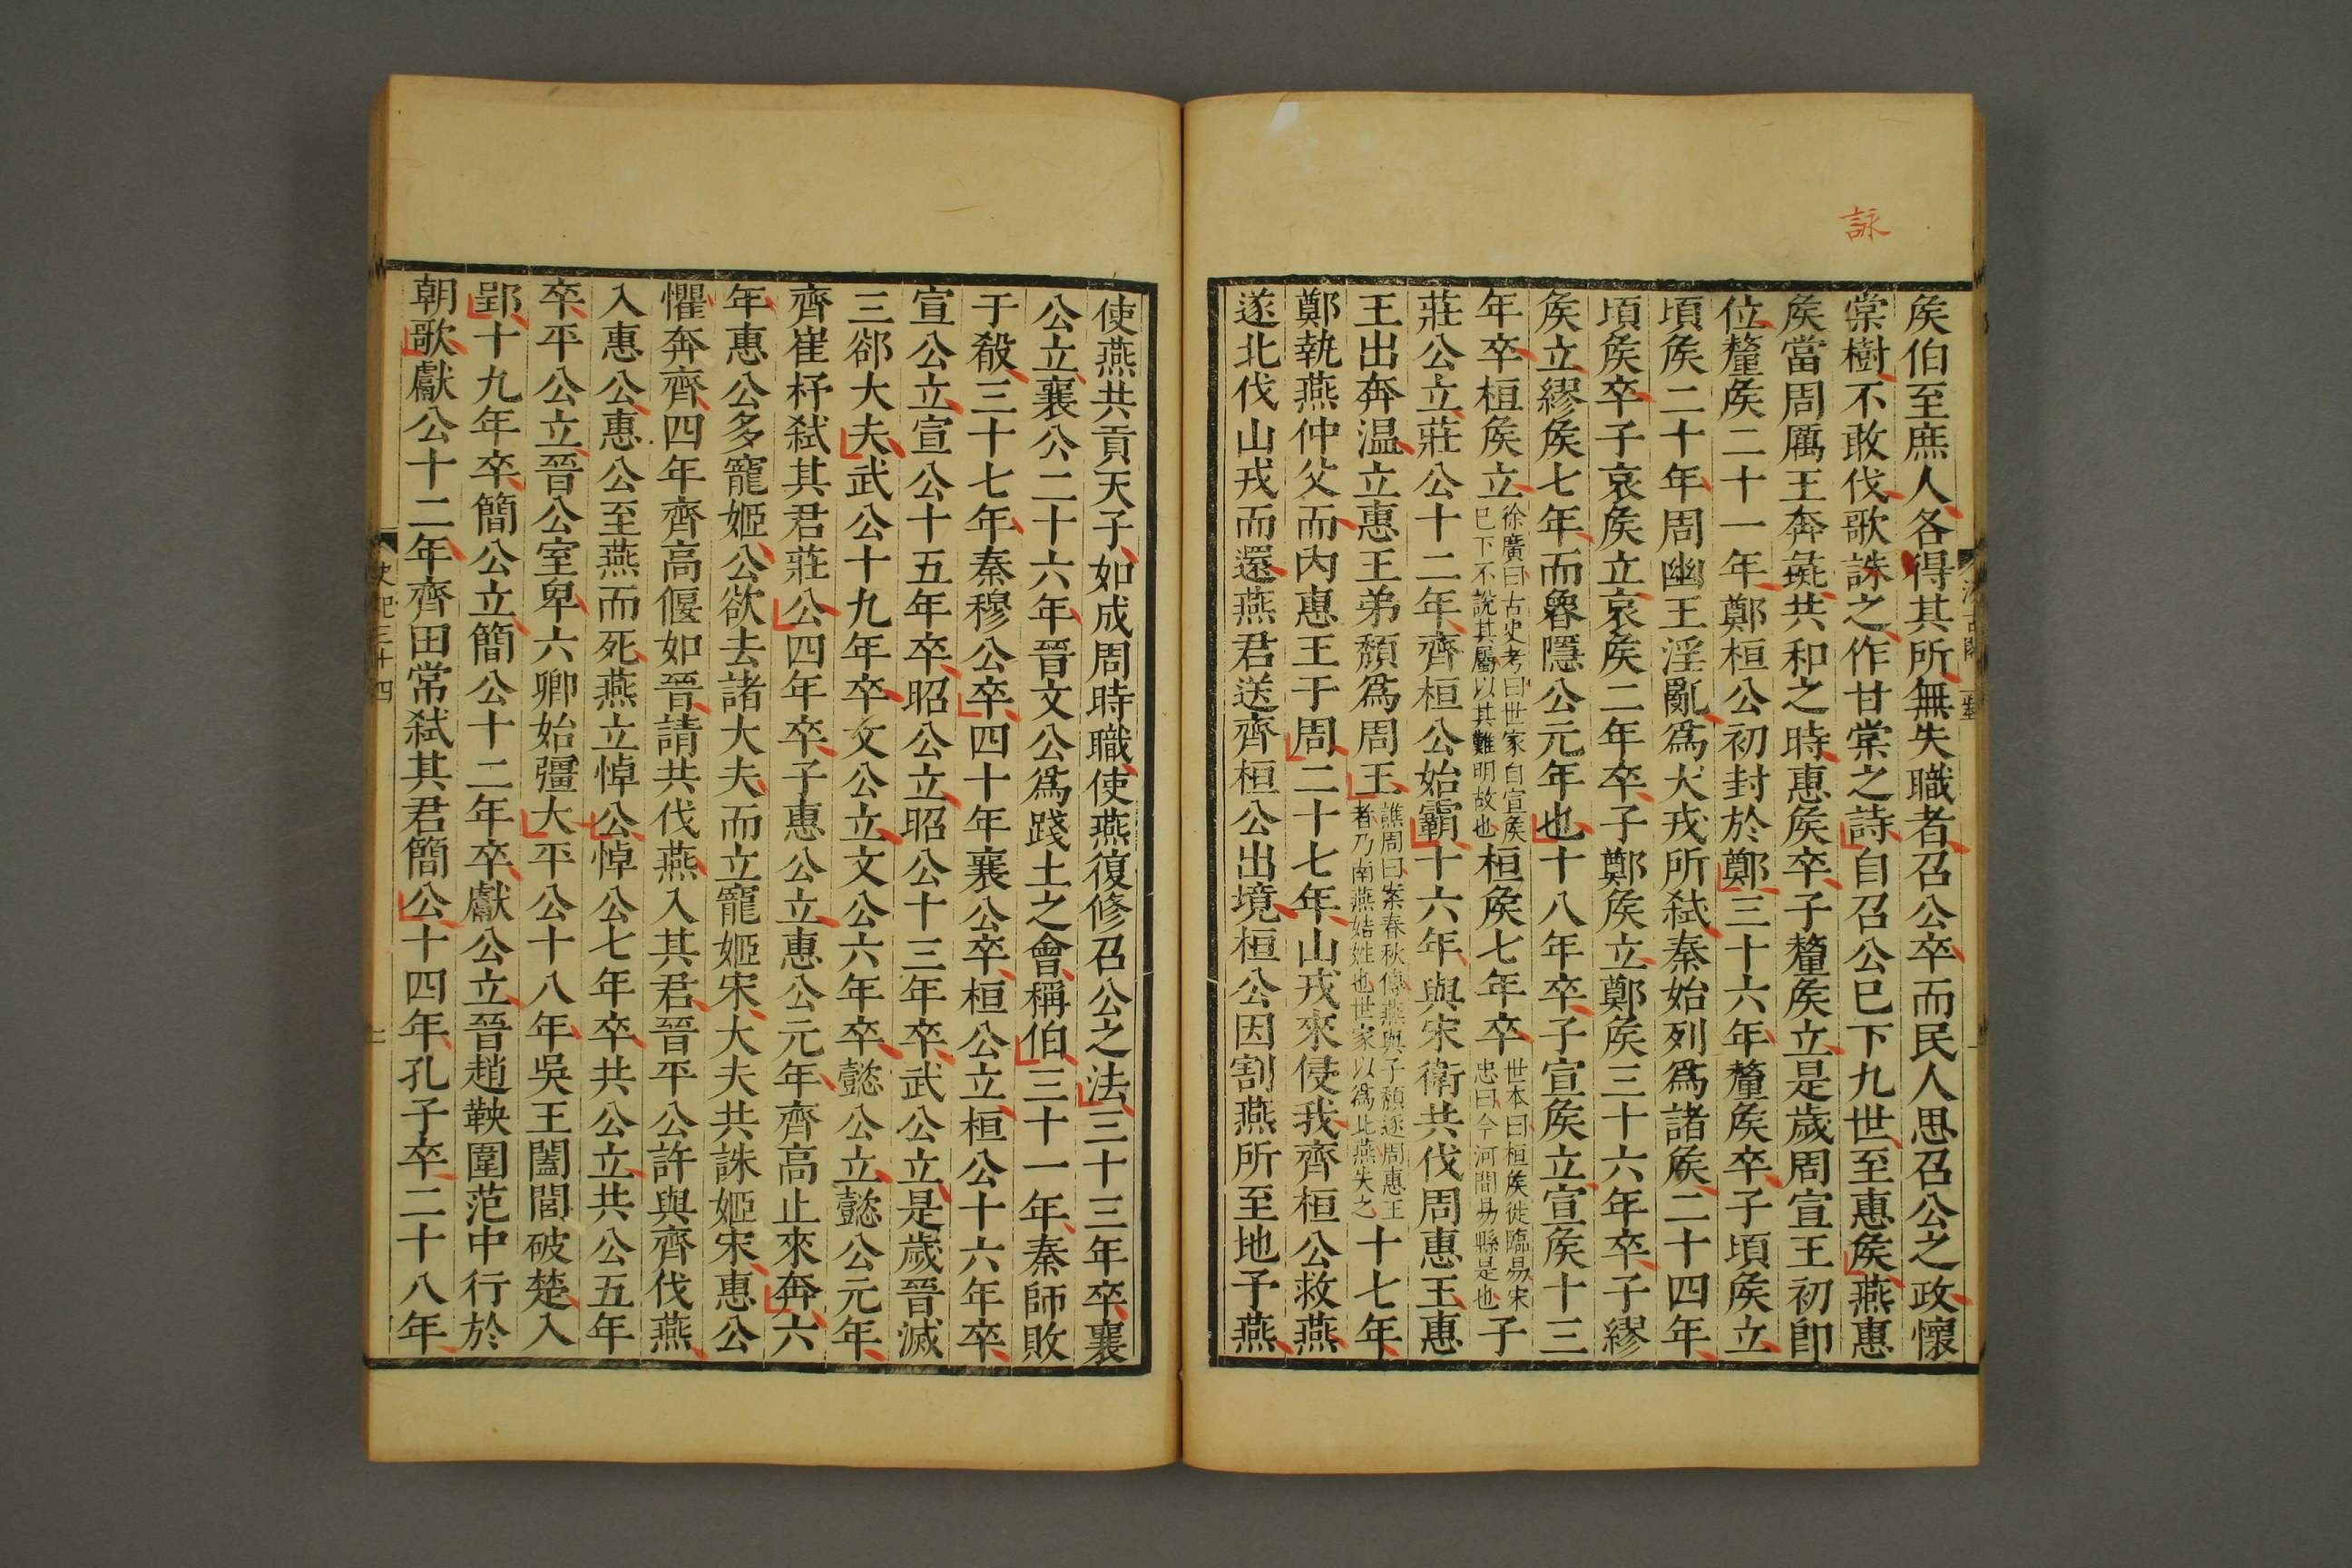 詠
矦伯至庶人各得其所無失職者召公卒而民人思召公之政懷
棠樹不敢伐歌詠之作甘棠之詩自召公已下九世至惠矦燕惠
矦當周厲王奔彘共和之時惠矦卒子釐矦立是歲周宣王初卽
位釐矦二十一年鄭桓公初封於鄭三十六年釐矦卒子頃矦立
頃矦二十年周幽王淫亂爲犬戎所弑秦始列爲諸矦二十四年
頃矦卒子哀矦立哀矦二年卒子鄭矦立鄭矦三十六年卒子繆
矦立繆矦七年而魯隱公元年也十八年卒子宣矦立宣矦十三
年卒桓矦立徐廣曰古史考曰世家自宣矦已下不說其屬以其難明故也桓矦七年卒世本曰桓矦徙臨易宋忠曰今河間易縣是也子
莊公立莊公十二年齊桓公始霸十六年與宋衛共伐周惠王惠
王出奔温立惠王弟頹爲周王譙周曰案春秋傳燕與子頹逐周惠王者乃南燕姞姓也世家以爲北燕失之十七年
鄭執燕仲父而內惠王于周二十七年山戎來侵我齊桓公救燕
遂北伐山戎而還燕君送齊桓公出境桓公因割燕所至地予燕
使燕共貢天子如成周時職使燕復修召公之法三十三年卒襄
公立襄公二十六年晉文公爲踐土之會稱伯三十一年秦師敗
于殽三十七年秦穆公卒四十年襄公卒桓公立桓公十六年卒
宣公立宣公十五年卒昭公立昭公十三年卒武公立是歲晉滅
三郤大夫武公十九年卒文公立文公六年卒懿公立懿公元年
齊崔杼弑其君莊公四年卒子惠公立惠公元年齊高止來奔六
年惠公多寵姬公欲去諸大夫而立寵姬宋大夫共誅姬宋惠公
懼奔齊四年齊高偃如晉請共伐燕入其君晉平公許與齊伐燕
入惠公惠公至燕而死燕立悼公悼公七年卒共公立共公五年
卒平公立晉公室卑六卿始彊大平公十八年吳王闔閭破楚入
郢十九年卒簡公立簡公十二年卒獻公立晉趙鞅圍范中行於
朝歌獻公十二年齊田常弑其君簡公十四年孔子卒二十八年
史記三十四